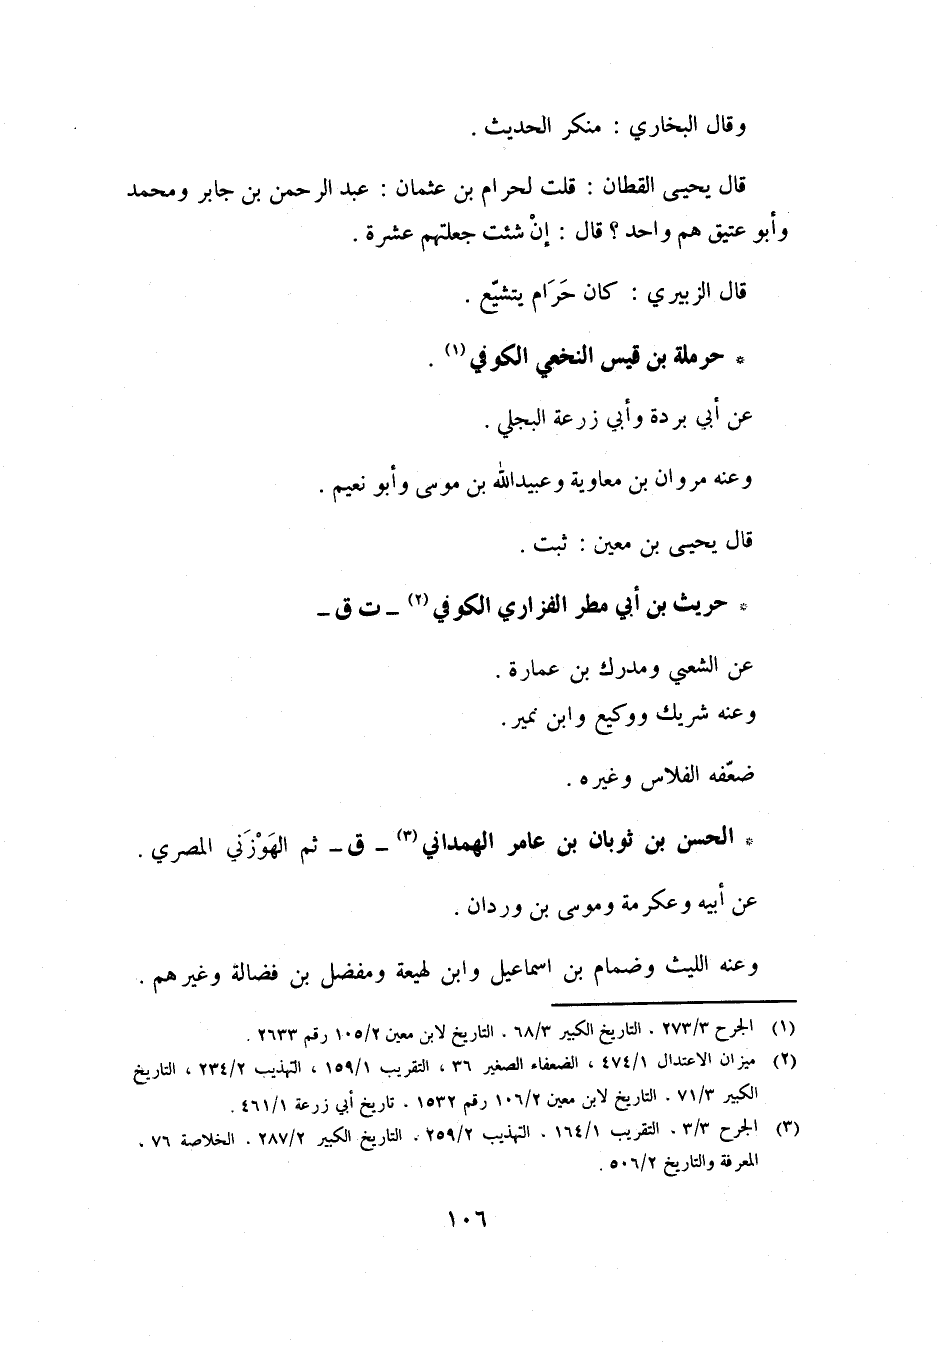 وقال البخاري : منكر الحديث .
قال يحيى القطان : قلت لحرام بن عثمان : عبد الرحمن بن جابر ومحمد
وأبو عتيق هم واحد ؟ قال : إنْ شئت جعلتهم عشرة .
قال الزبيري : كان حَرَام يتشيّع .
* حرملة بن قيس النخعي الكوفي (١) .
عن أبي بردة وأبي زرعة البجلي .
وعنه مروان بن معاوية وعبيدالله بن موسى وأبو نعيم .
قال يحيى بن معين : ثبت .
* حريث بن أبي مطر الفزاري الكوفي (٢) ـ ت ق ـ
عن الشعبي ومدرك بن عمارة .
وعنه شريك ووكيع وابن نمير .
ضعّفه الفلاس وغيره .
* الحسن بن ثوبان بن عامر الهمداني (٣) ـ ق ـ ثم الهَوْزَني المصري .
عن أبيه وعكرمة وموسى بن وردان .
وعنه الليث وضمام بن اسماعيل وابن لهيعة ومفضل بن فضالة وغيرهم .
(١) الجرح ٢٧٣/٣ . التاريخ الكبير ٦٨/٣ . التاريخ لابن معين ١٠٥/٢ رقم ٢٦٣٣ .
(٢) ميزان الاعتدال ٤٧٤/١ ، الضعفاء الصغير ٣٦ ، التقريب ١٥٩/١ ، التهذيب ٢٣٤/٢ ، التاريخ
الكبير ٧١/٣ . التاريخ لابن معين ١٠٦/٢ رقم ١٥٣٢ . تاريخ أبي زرعة ٤٦١/١ .
(٣) الجرح ٣/٣ . التقريب ١٦٤/١ . التهذيب ٢٥٩/٢ . التاريخ الكبير ٢٨٧/٢ . الخلاصة ٧٦ .
المعرفة والتاريخ ٥٠٦/٢ .
١٠٦